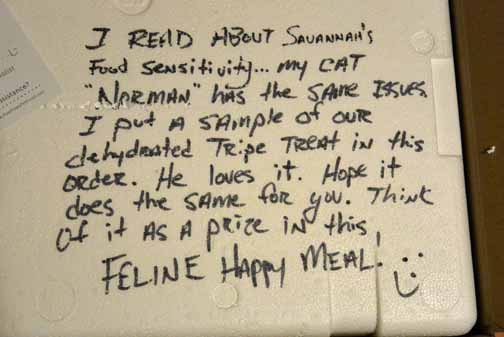 I READ ABOUT SAVANNAH'S
FOOD SENSITIVITY... MY CAT
"NORMAN" HAS THE SAME ISSUES
I PUT A SAMPLE OF OUR
dehydrated TRIPE TREAT in this
ORDER. He loves it. Hope it
does the SAME for you. Think
Of it AS A PRIZE in this
FELINE HAPPY MEAL!